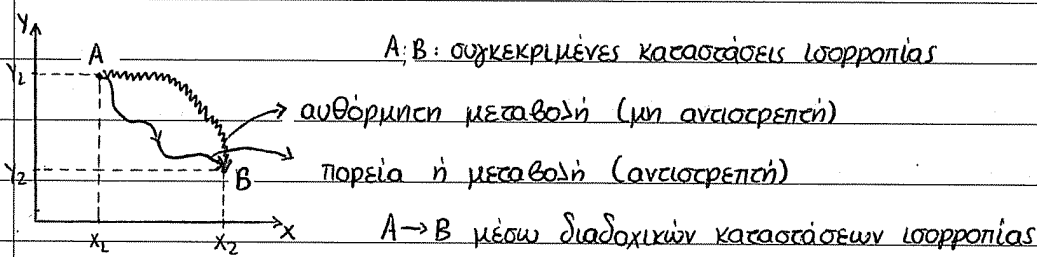 Y
A
A; B: συγκεκριμένες καταστάσεις ισορροπίας
Y1
αυθόρμητη μεταβολή (μη αντιστρεπτή)
Y2
B
πορεία ή μεταβολή (αντιστρεπτή)
X1
X2
X
A→B μέσω διαδοχικών καταστάσεων ισορροπίας